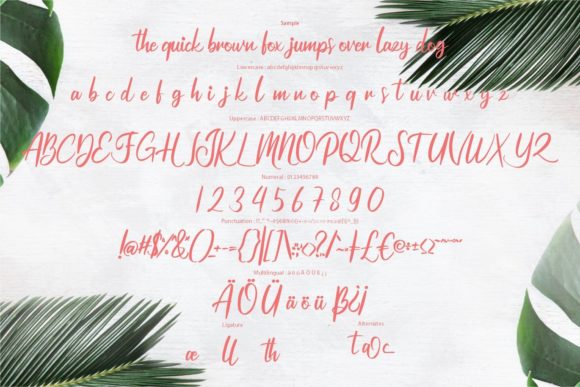 Sample
the quick brown fox jumps over lazy dog
Lowercase : abcdefghijklmnop qrstuvwxyz
a b c d e f g h i j k l m n o p q r s t u v w x y z
Uppercase : ABCDEFGHIJKLMNOPQRSTUVWXYZ
ABCDEFGHIJKLMNOPQRSTUVWXYZ
Numeral : 0123456789
1234567890
Punctuation :
!@#$%&()_+-={}|[]\:;<>?,/
Multilingual : ä ö ü Ä Ö Ü ß ¿ ¡
ÄÖÜ äöü ß¿¡
Ligature
Alternates
æ U th